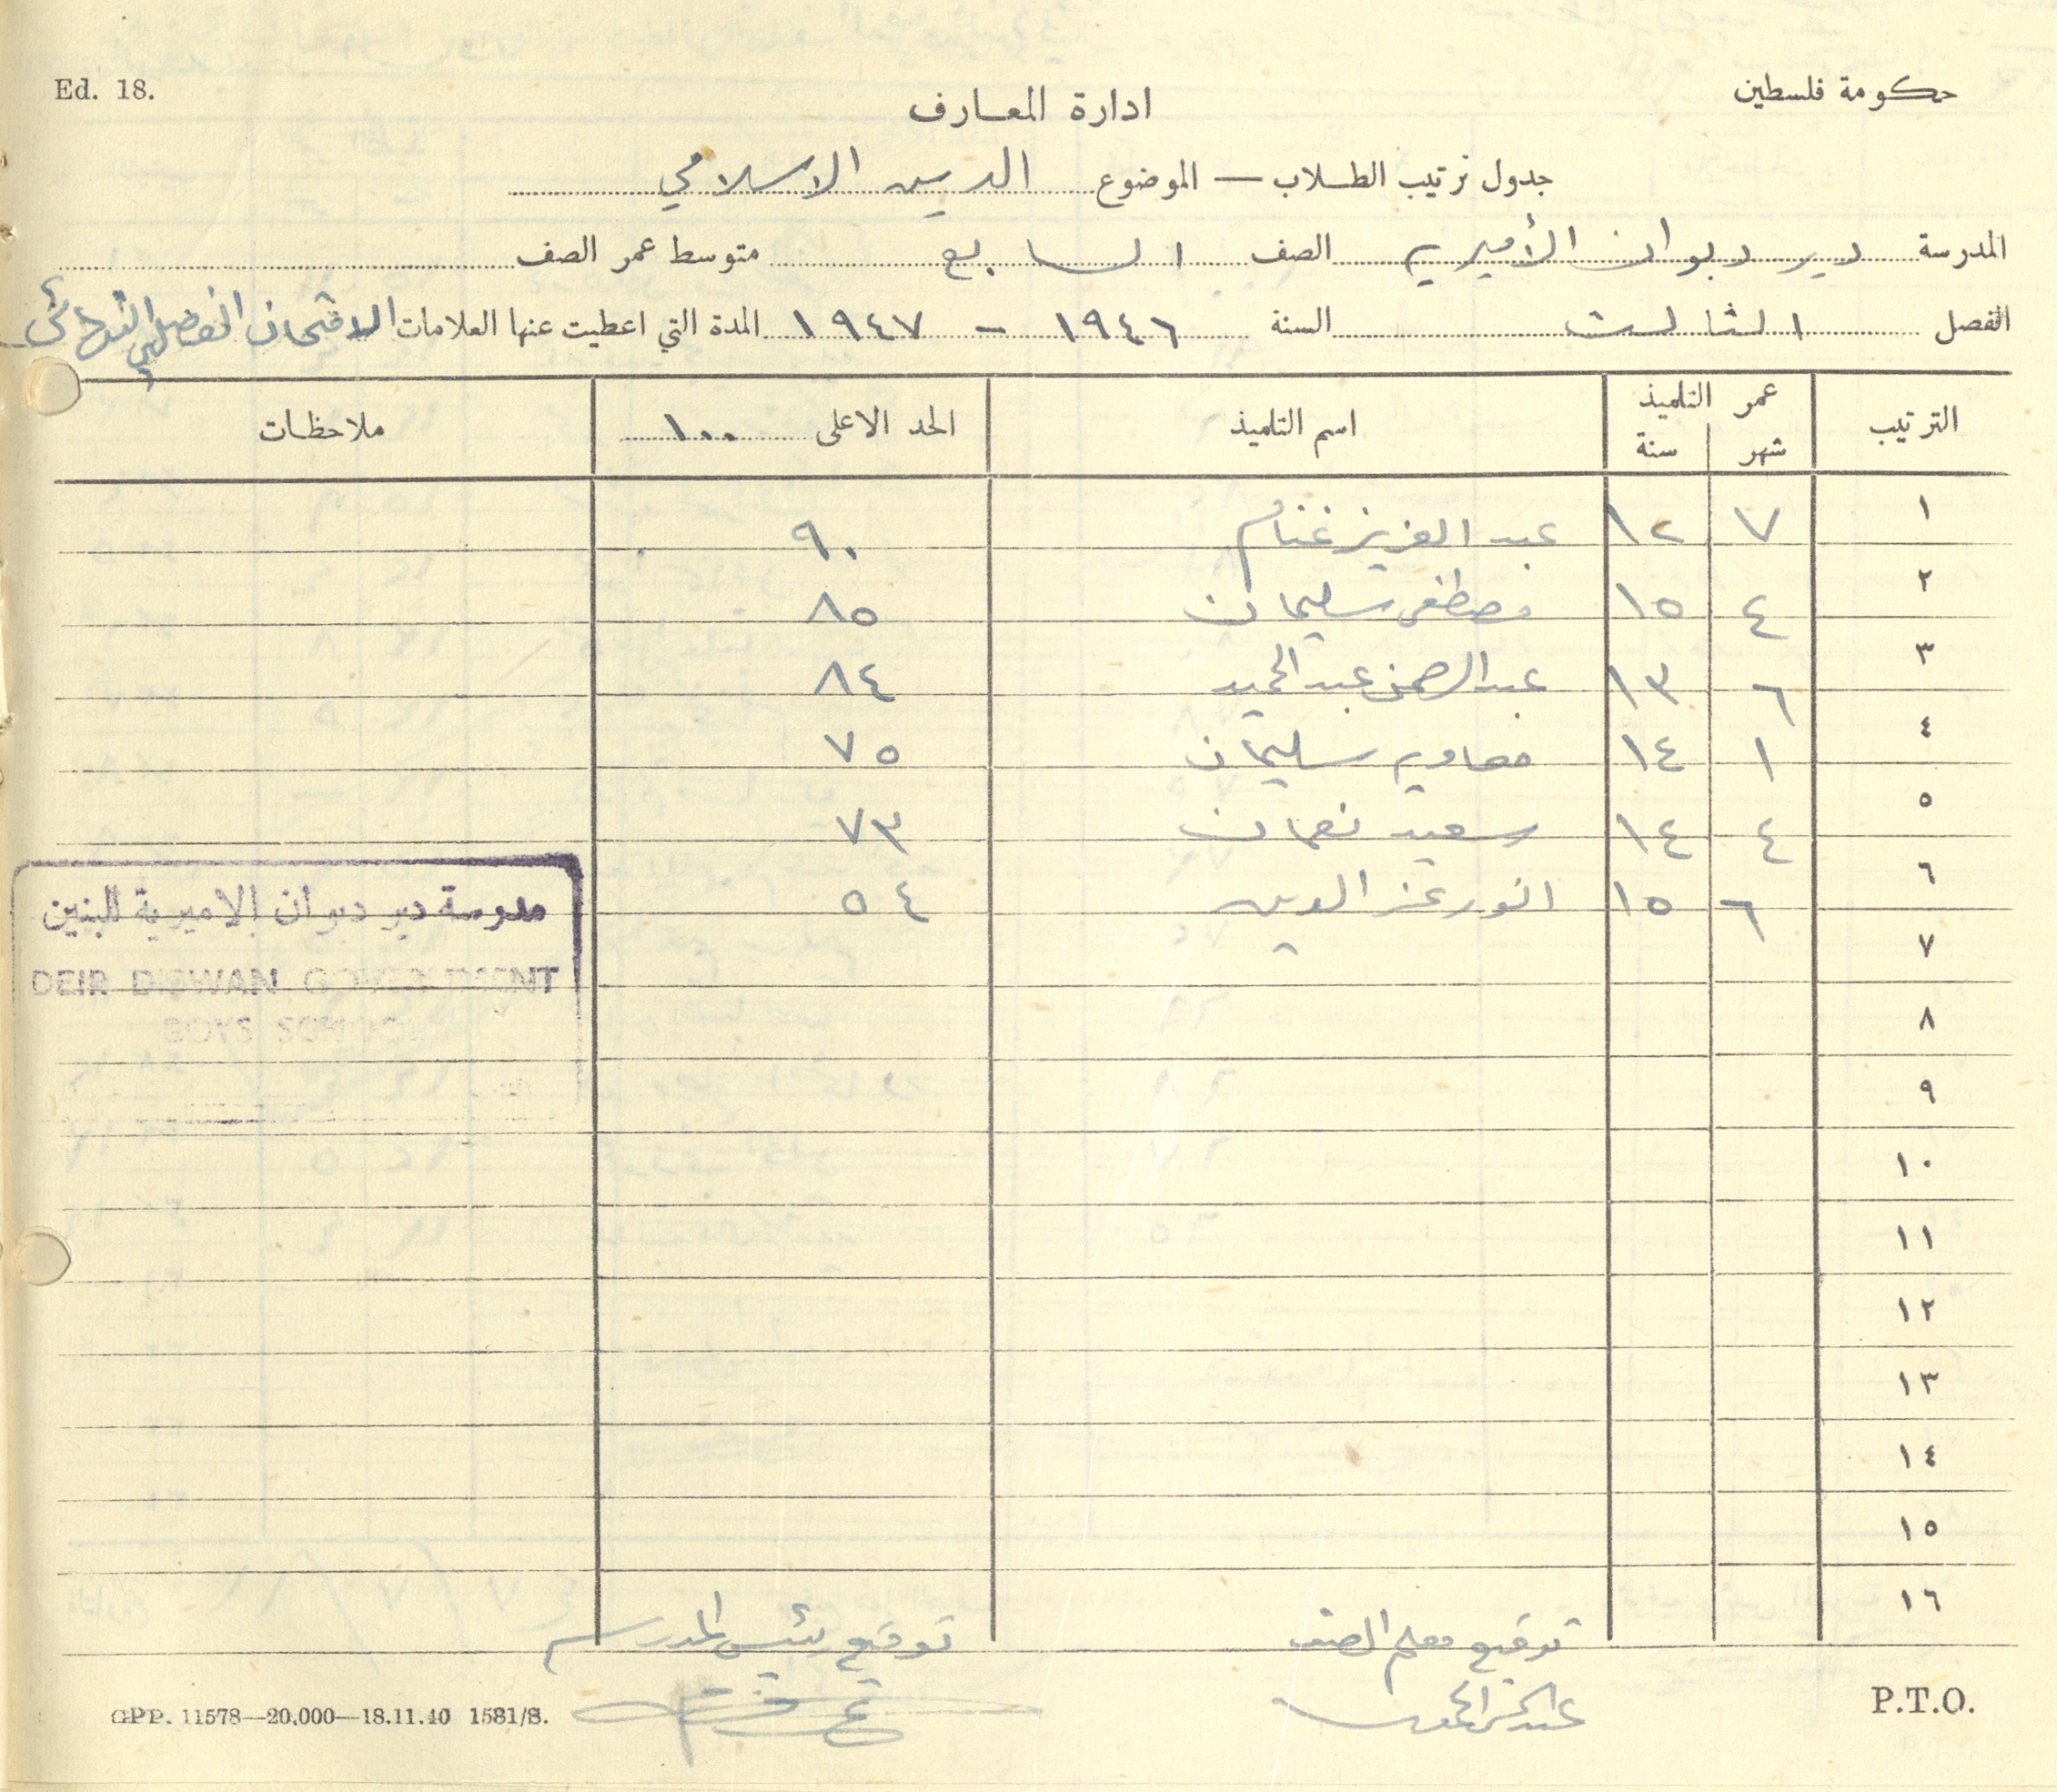 Ed. 18.
حكومة فلسطين
ادارة المعارف
جدول ترتيب الطلاب — الموضوع الدين الاسلامي
المدرسة دير دبوان الأميرية الصف السابع متوسط عمر الصف
الفصل الثالث السنة ١٩٤٦ - ١٩٤٧ المدة التي اعطيت عنها العلامات الامتحان الفصلي النهائي
الترتيب عمر التلميذ شهر سنة اسم التلميذ الحد الاعلى ١٠٠ ملاحظات
١ ٧ ١٢ عبد العزيز غنام ٩٠
٢ ٤ ١٥ مصطفى سليمان ٨٥
٣ ٦ ١٣ عبد الرحمن عبد الحميد ٨٤
٤ ١ ١٤ معاوية سليمان ٧٥
٥ ٤ ١٤ سعيد نعمان ٧٣
٦ ٦ ١٥ انور عز الدين ٥٤
٧
٨
٩
١٠
١١
١٢
١٣
١٤
١٥
١٦
مدرسة دير دبوان الاميرية للبنين
DEIR DIBWAN GOVERNMENT
BOYS SCHOOL
توقيع معلم الصف
توقيع رئيس المدرسة
GPP. 11578—20,000—18.11.40 1581/8.
P.T.O.